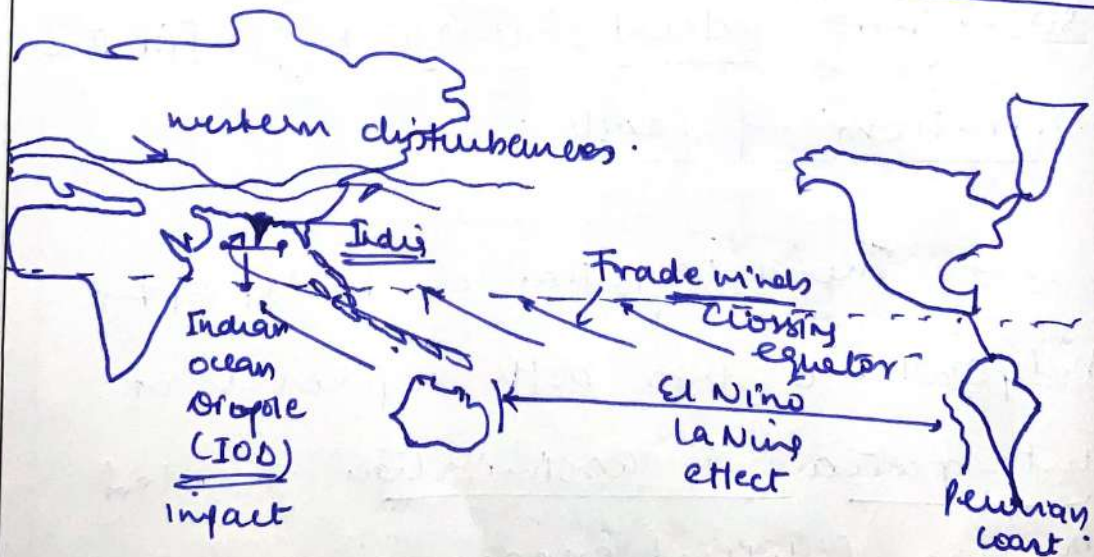 western disturbances.
India
Trade winds
crossing
equator
Indian
ocean
Diopole
(IOD)
impact
El Nino
La Nina
effect
Peruvian
coast.